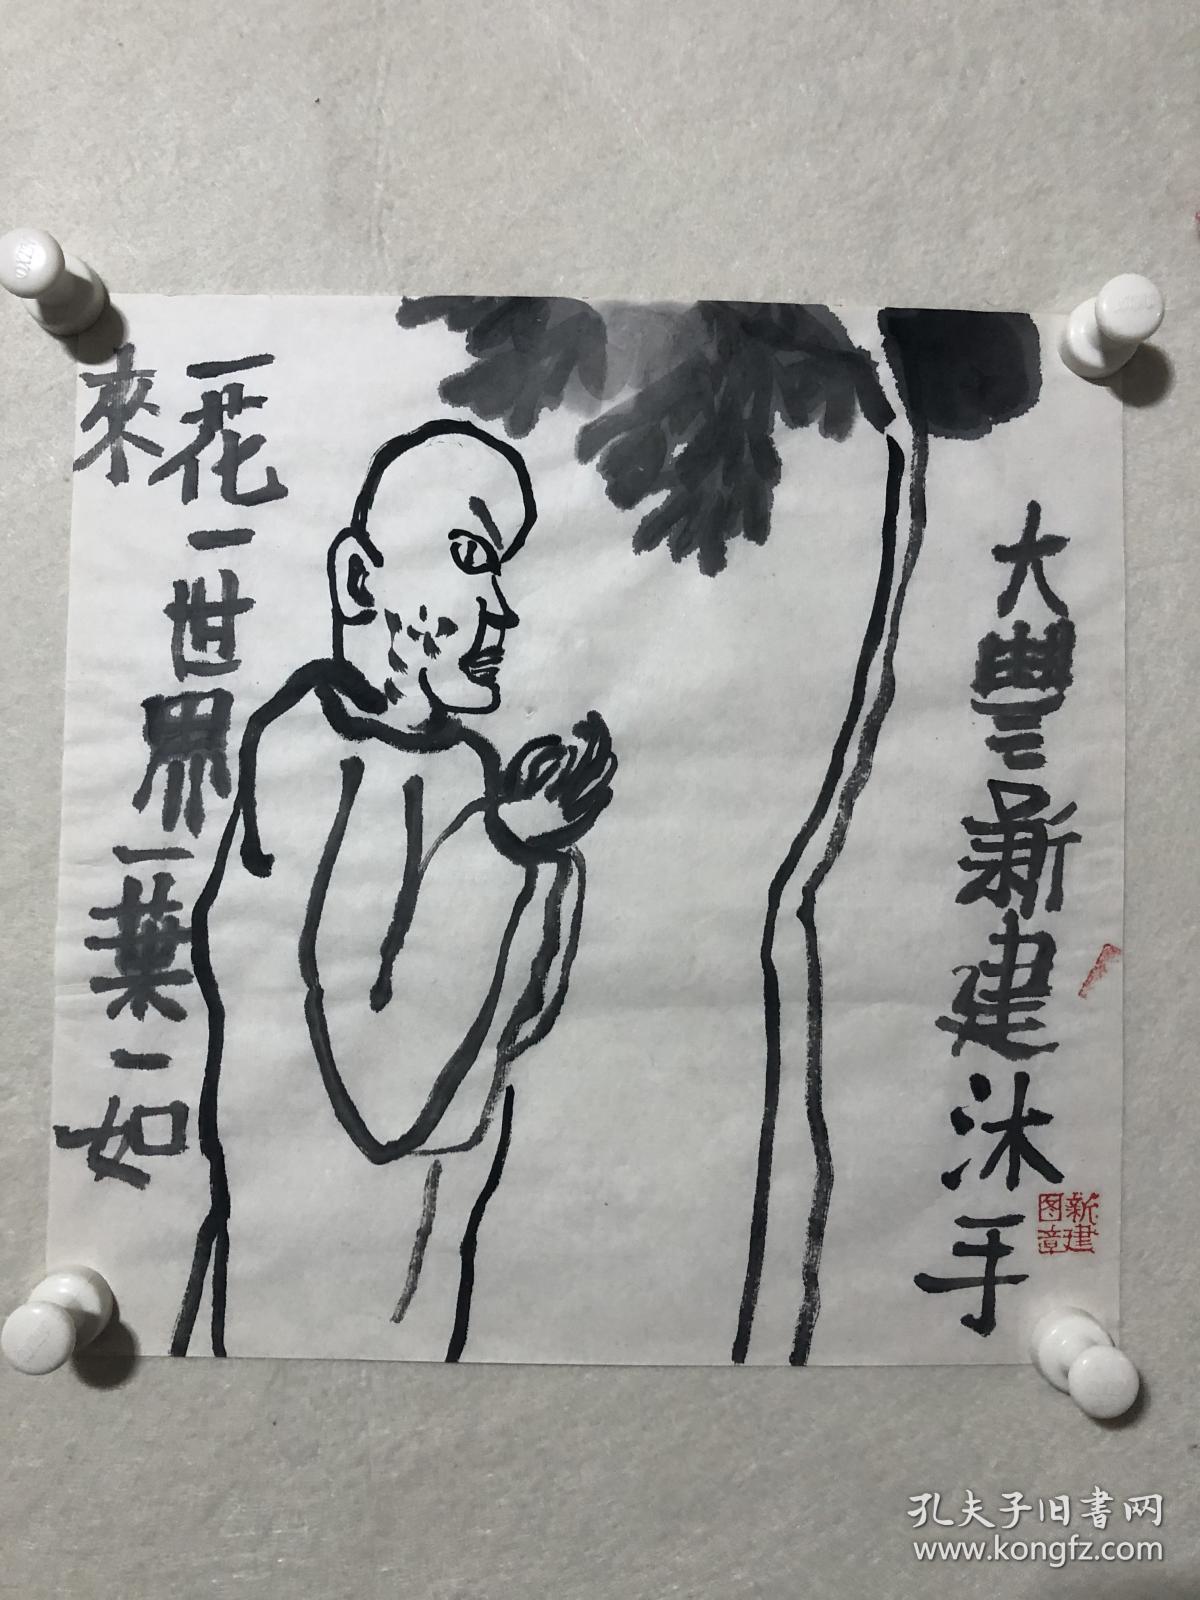 大豐新建沐手
新建
图章
一花一世界一葉一如
來
孔夫子旧書网
www.kongfz.com